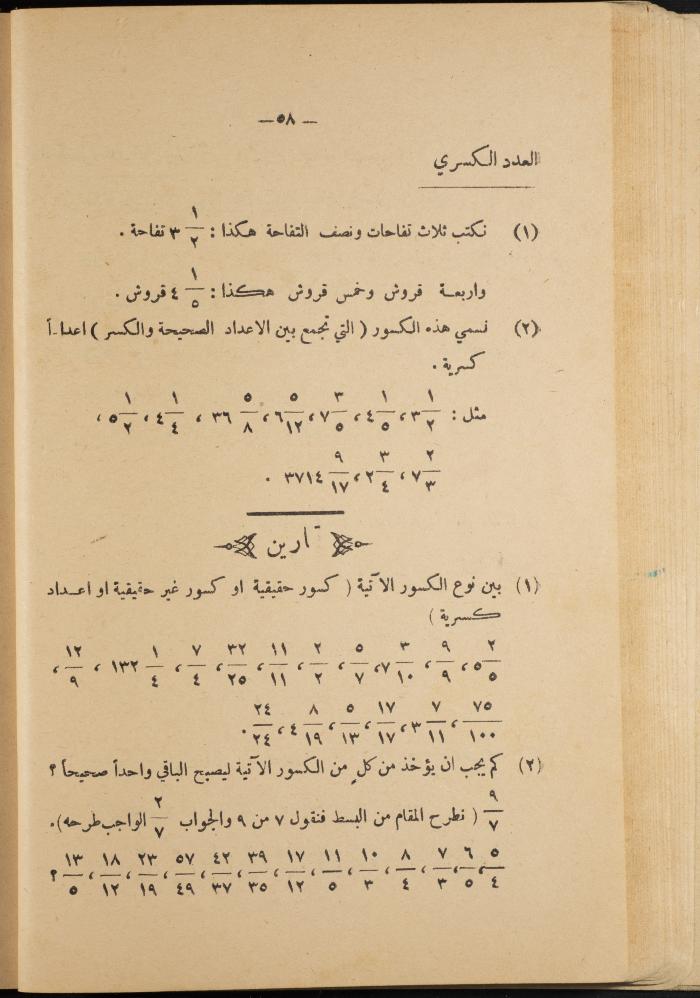 — ٥٨ —
العدد الكسري
(١) نكتب ثلاث تفاحات ونصف التفاحة هكذا : ٣ ١/٢ تفاحة .
واربعة قروش وخمس قروش هكذا : ٤ ١/٥ قروش .
(٢) نسمي هذه الكسور ( التي تجمع بين الاعداد الصحيحة والكسر ) اعداداً
كسرية .
مثل : ٣ ١/٢ ، ٤ ١/٥ ، ٧ ٣/٥ ، ٦ ٥/١٢ ، ٣٦ ٥/٨ ، ٤ ١/٤ ، ٥ ١/٢ ،
٧ ٢/٣ ، ٢ ٣/٤ ، ٣٧١٤ ٩/١٧ .
تمارين
(١) بين نوع الكسور الآتية ( كسور حقيقية او كسور غير حقيقية او اعداد
كسرية )
٥ ٢/٥ ، ٩/٩ ، ٧ ٣/١٠ ، ٥/٧ ، ٢/٢ ، ١١/١١ ، ٣٢/٢٥ ، ٧/٤ ، ١٣٢ ١/٤ ، ١٢/٩ ،
٧٥/١٠٠ ، ٣ ٧/١١ ، ١٧/١٧ ، ٥/١٣ ، ٤ ٨/١٩ ، ٢٤/٢٤ .
(٢) كم يجب ان يؤخذ من كلٍ من الكسور الآتية ليصبح الباقي واحداً صحيحاً ؟
٩/٧ ( نطرح المقام من البسط فنقول ٧ من ٩ والجواب ٢/٧ الواجب طرحه ) .
٥/٤ ، ٦/٥ ، ٧/٣ ، ٨/٤ ، ١٠/٣ ، ١١/٥ ، ١٧/١٢ ، ٣٩/٣٥ ، ٤٢/٣٧ ، ٥٧/٤٩ ، ٢٣/١٩ ، ١٨/١٢ ، ١٣/٥ ؟